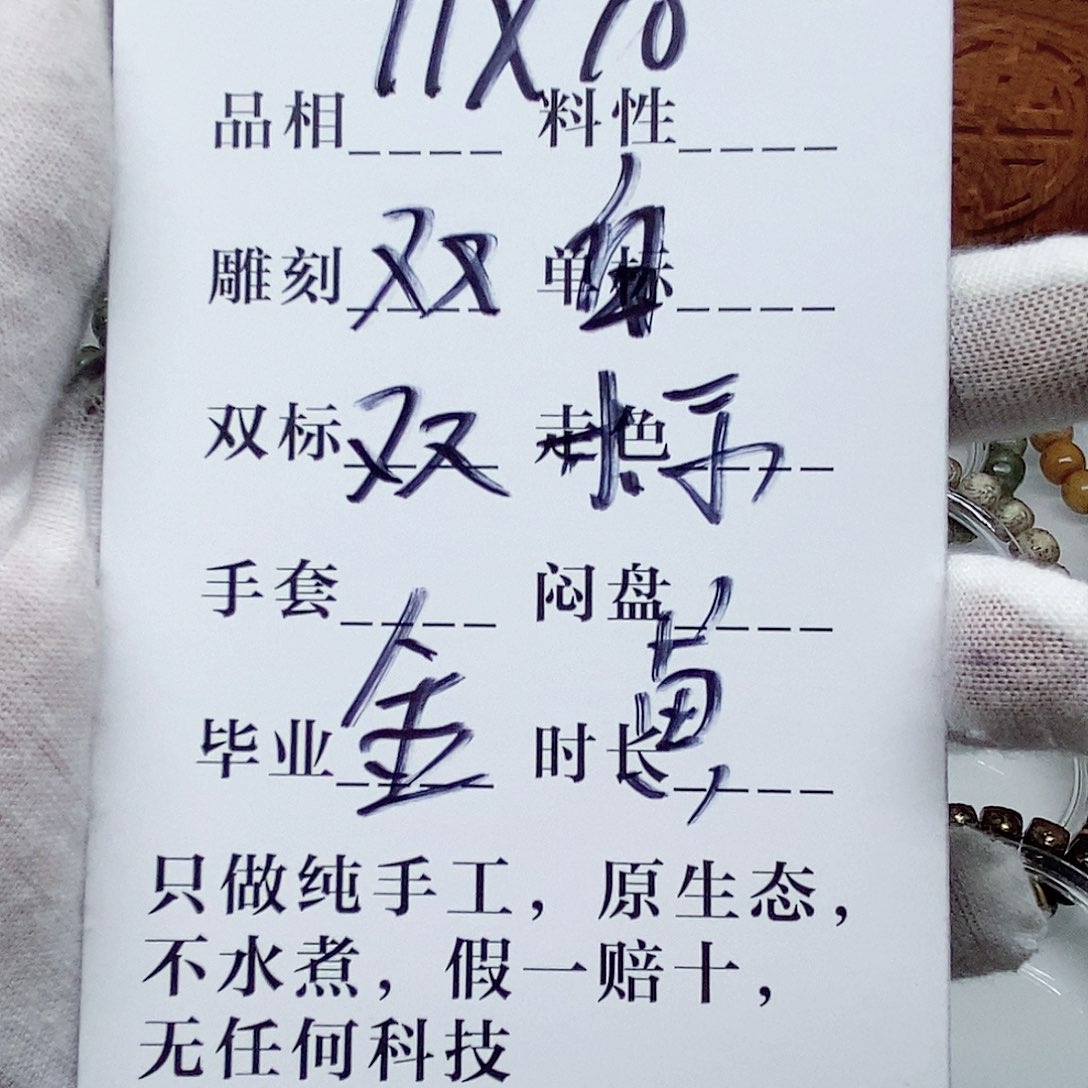 11X10
品相____ 料性____
雕刻____ 单标____
双
双标____ 走色____
双 标
手套____ 闷盘____
毕业____ 时长____
金 黄
只做纯手工，原生态，
不水煮，假一赔十，
无任何科技